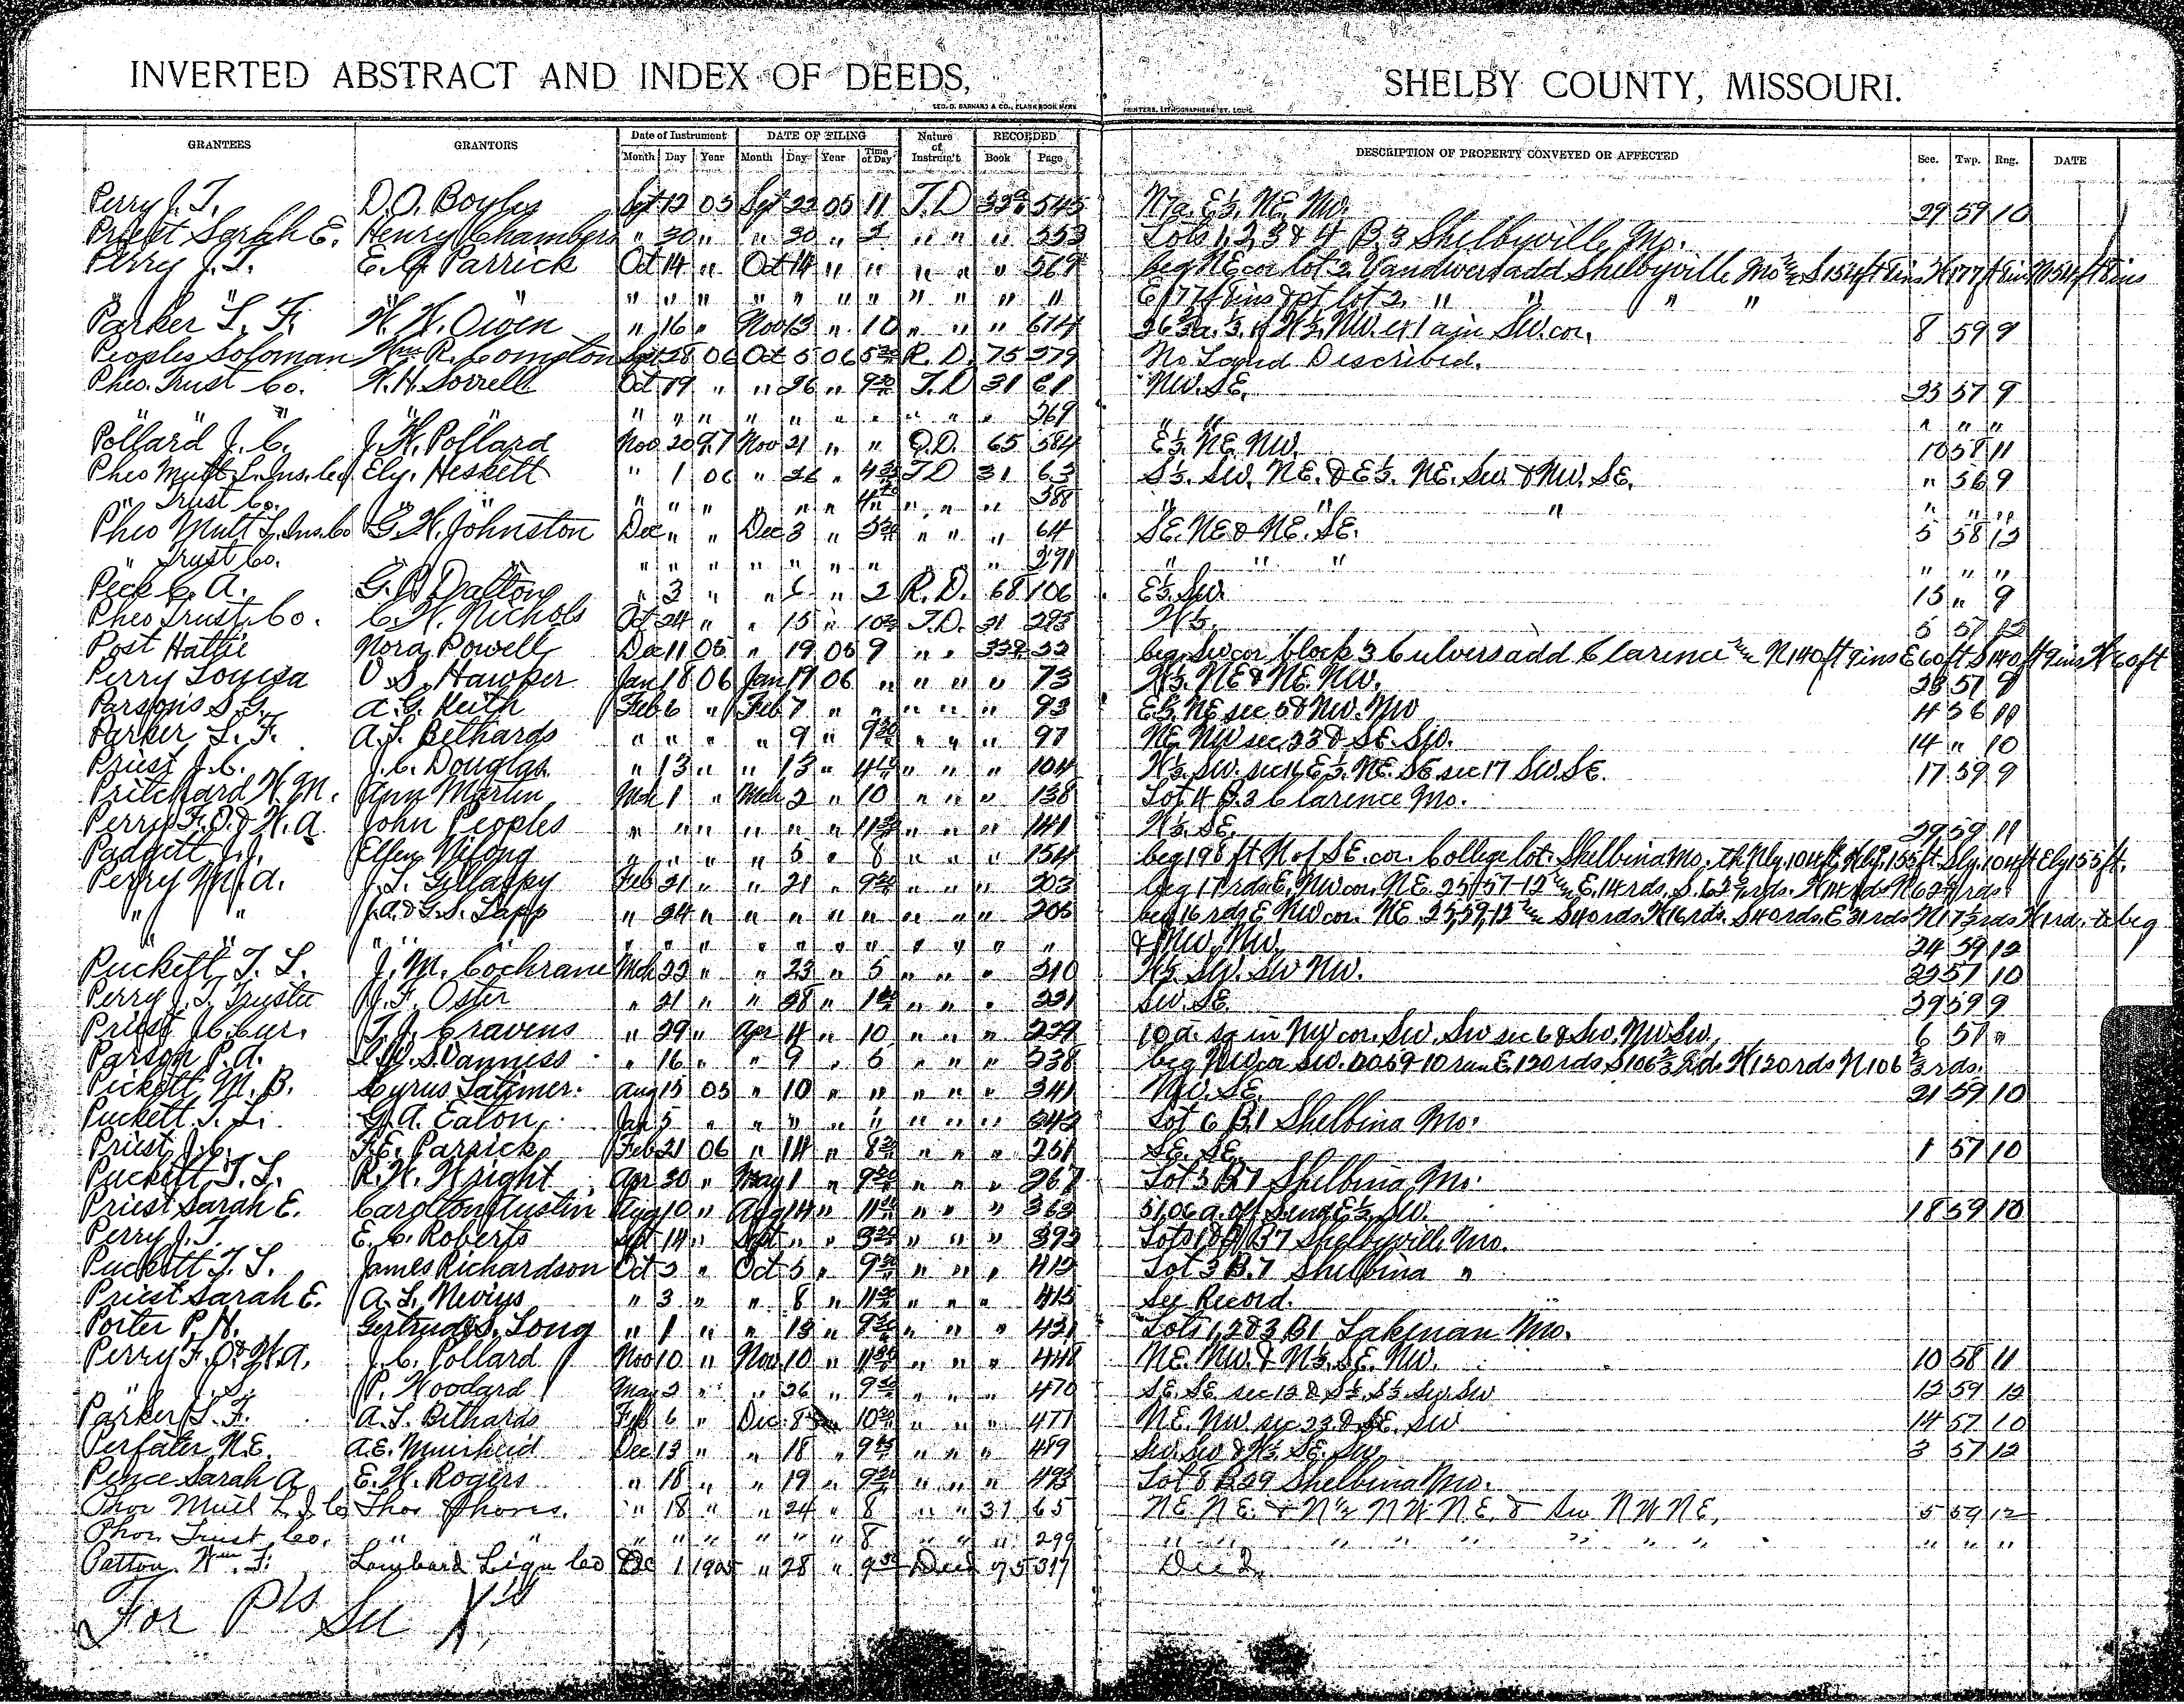 INVERTED ABSTRACT AND INDEX OF DEEDS, SHELBY COUNTY, MISSOURI.
GEO. D. BARNARD & CO., BLANK BOOK MFRS PRINTERS, LITHOGRAPHERS, ST. LOUIS
GRANTEES GRANTORS Date of Instrument DATE OF FILING Nature of Instrum't. RECORDED DESCRIPTION OF PROPERTY CONVEYED OR AFFECTED Sec. Twp. Rng. DATE
Month Day Year Month Day Year Time of Day Book Page
Perry J. T. D. O. Boyles Sept 12 05 Sept 22 05 11 T. D 545 29 59 10
Priest Sarah E. Henry Chambers " 30 " " 30 " 2 " " " 553 Lots 1, 2, 3 & 4 B. 3 Shelbyville, Mo.
Perry J. T. E. G. Parrick Oct 14 " Oct 14 " " " " " 569 beg NE cor lot 2 Vandivers add Shelbyville Mo
" " " " " " " " " " " " " " " " pt lot 2, " " " "
Parker L. F. W. W. Owen " 16 " Nov 13 " 10 " " " 614 8 59 9
Peoples Soloman Wm R. Compton Sept 28 06 Oct 5 06 R. D. 75 279 No Land Described.
Pheo. Trust Co. W. H. Sorrell Oct 19 " " 26 " 9 30 T. D 31 61 NW. SE. 23 57 9
" " " " " " " " " " " " " " 269 " " " " "
Pollard J. C. J. W. Pollard Nov 20 97 Nov 21 " " Q. D. 65 584 E½. NE. NW. 10 58 11
Pheo Mutl L. Ins. Co Ely. Heskett " 1 06 " 26 " T D 31 63 S½. SW. NE. & E½. NE. SW. & NW. SE. " 56 9
" Trust Co. " " " " " " " " " " " 388 " " " " " "
Pheo Mutl L. Ins. Co G. W. Johnston Dec " " Dec 3 " " " " 64 SE. NE & NE. SE. 5 58 12
" Trust Co. " " " " " " " " " " " " 291 " " " " " "
Peck C. A. G. P. Dalton " 3 " " 6 " 2 R. D. 68 106 E½. SW. 15 " 9
Pheo Trust Co. C. W. Nichols Oct 24 " " 15 " T. D. 31 293 W½. 5 57 12
Post Hattie Nora Powell Dec 11 05 " 19 05 9 " " beg. SW cor block 3 Culvers add Clarence N 140 ft 9 ins E 60 ft S 140 ft 9 ins W 60 ft
Perry Louisa V. S. Hawker Jan 18 06 Jan 19 06 " " " " 73 W½. NE & NE. NW. 28 57 9
Parsons S. G. A. G. Keith Feb 6 " Feb 7 " " " " " 93 E½. NE sec 5 & NW. NW 4 56 10
Parker L. F. A. L. Bethards " " " " 9 " 9 30 " " " 97 NE. NW sec 23 & SE. SW. 14 " 10
Priest J. C. J. C. Douglas " 13 " " 13 " " " " 104 W½. SW. sec 16, E½. NE. SE sec 17 SW. SE. 17 59 9
Pritchard W. M. Ann Martin Mch 1 " Mch 2 " 10 " " " 138 Lot 4 B. 3 Clarence Mo.
Perry F. O. & W. A. John Peoples " " " " " " 11 30 " " " 141 W½. SE. 29 59 11
Padgett J. J. Ellen Nifong " " " " 5 " 8 " " " 154 beg 198 ft N of SE. cor. College lot. Shelbina Mo. th Nly. 104 ft, Wly. 155 ft. Sly. 104 ft Ely 155 ft.
Perry M. A. J. L. Gillaspy Feb 21 " " 21 " 9 30 " " " 203 beg 17 rds. E. NW cor. NE. 25-57-12 E. 14 rds.
" " J. A. & G. S. Tapp " 24 " " " " " " " " 205 beg 16 rds E NW cor. NE S 40 rds. W 16 rds. S 40 rds. E 31 rds
" " " " " " " " " " " " " " " & NW. NW. 24 59 12
Puckett, T. L. J. M. Cochrane Mch 22 " " 23 " 5 " " " 210 W½ SW. SW NW. 22 57 10
Perry J. T. Trustee J. F. Oster " 21 " " 28 " " " " 221 SW. SE. 29 59 9
Priest J. C. Cur. T. J. Cravens " 29 " Apr 4 " 10 " " " 229 10 a. sq in NW cor. SW. SW sec 6 & SW. NW SW. 6 57 "
Parson P. A. " 16 " " 9 " 5 " " " 238 E. 120 rds S 106 ⅔ Rd. W 120 rds N 106 ⅔ rds.
Pickett M. B. Cyrus Latimer. Aug 15 05 " 10 " " " " " 341 NW. SE. 21 59 10
Puckett T. L. G. A. Eaton, Jan 5 " " " " " " " " 343 Lot 6 B. 1 Shelbina Mo.
Priest J. C. F. E. Parrick Feb 21 06 " 14 " 8 30 " " " 251 SE. SE. 1 57 10
Puckett T. L. R. W. Wright Apr 30 " May 1 " 9 30 " " " 267 Lot 3 B. 7 Shelbina Mo.
Priest Sarah E. Carolton Austin Aug 10 " Aug 14 " 11 30 " " " 363 51,06 a. off S end E½. SW. 18 59 10
Perry J. T. E. C. Roberts Sept 14 " Sept " " " " " 393 B 7 Shelbyville Mo.
Puckett T. L. James Richardson Oct 2 " Oct 5 " 9 30 " " " 412 Lot 3 B. 7 Shelbina "
Priest Sarah E. A. L. Nevins " 3 " " 8 " 11 30 " " " 415 See Record.
Porter P. N. Gertrude S. Long " 1 " " 13 " 9 30 " " " 431 Lots 1, 2 & 3 B 1 Lakenan Mo.
Perry F. O. & W. A. J. C. Pollard Nov 10 " Nov 10 " " " " 448 NE. NW. & N½. SE. NW. 10 58 11
" " P. Woodard May 2 " " 26 " 9 30 " " " 470 SE. SE. sec 12 & S½. S½. SW. SW 12 59 12
Parker L. F. A. L. Bethards Feb 6 " Dec 8 10 30 " " " 477 NE. NW sec 23. & SE. SW 14 57 10
Perfater N. E. A. E. Muirheid Dec 13 " " 18 " " " " 489 SW. SW & W½ SE. SW. 3 57 12
Pence Sarah A E. W. Rogers " 18 " " 19 " 9 30 " " " 493 Lot 8 B 29 Shelbina Mo.
Phoe Mutl L. I Co Thos " 18 " " 24 " 8 " " 31 65 NE. NE. & N½ NW. NE. & SW NW NE. 5 59 12
Phoe Trust Co. " " " " " " " " 8 " " " 299 " " " " " " " " "
Patton Wm F. Lombard Liqu Co Dec 1 1905 " 28 " 9 30 Deed 75 317 Deed
For P's See X's